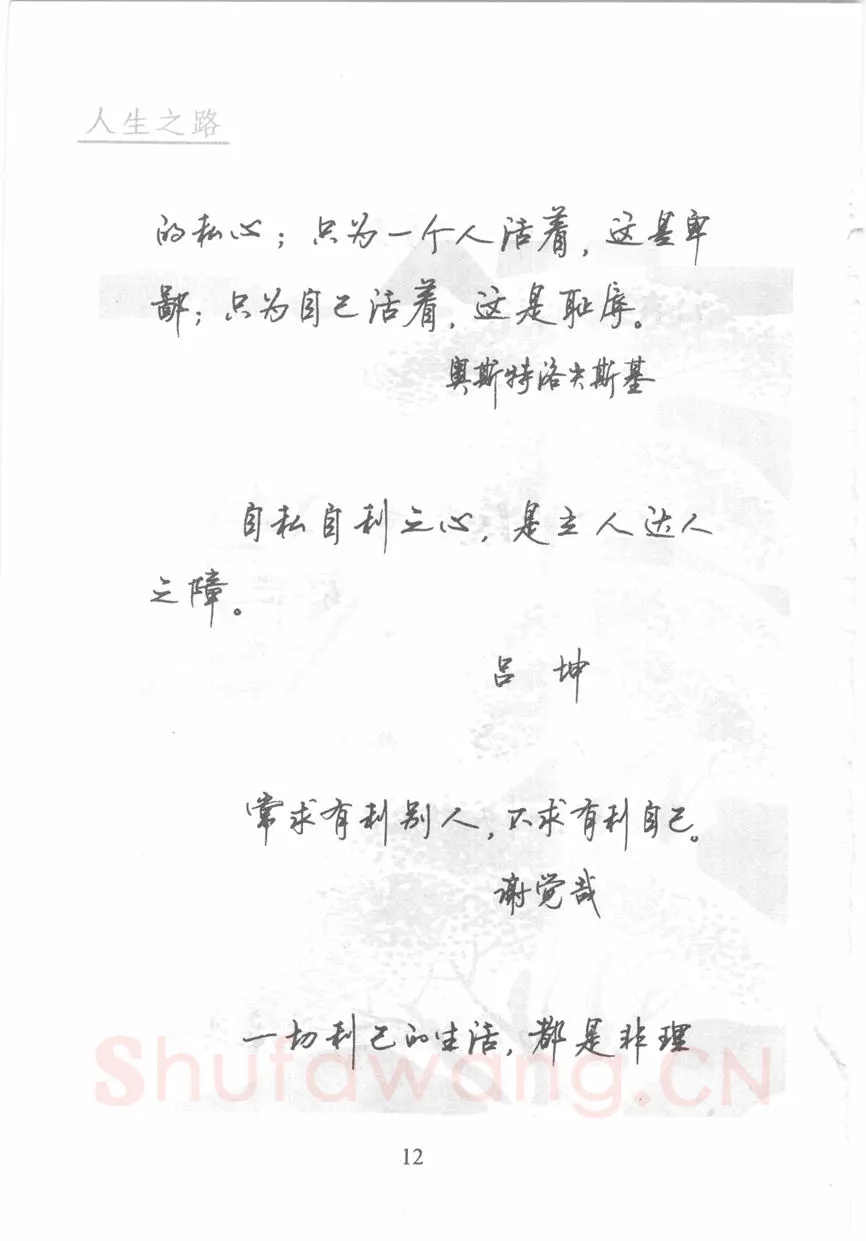 人生之路
的私心；只为一个人活着，这是卑
鄙；只为自己活着，这是耻辱。
奥斯特洛夫斯基
自私自利之心，是立人达人
之障。
吕 坤
常求有利别人，不求有利自己。
谢觉哉
一切利己的生活，都是非理
Shufawang.CN
12